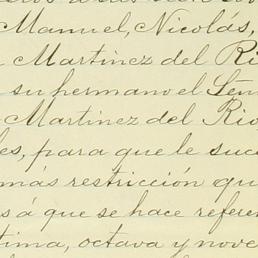 Manuel, Nicolás,
Martinez del Ri
su hermano el Señ
Martinez del Rio
es, para que le suc
más restricción qu
s á que se hace referen
tima, octava y nove